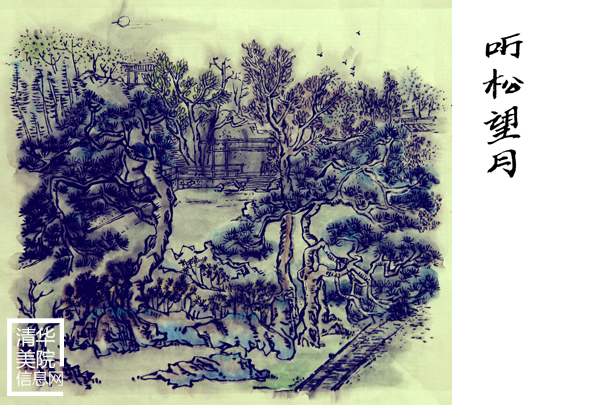 听松望月
清华
美院
信息网